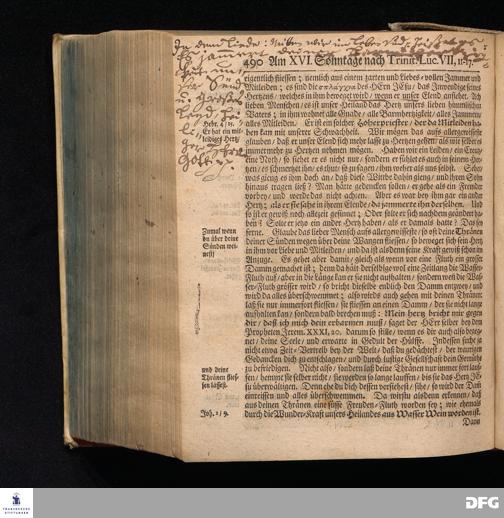 In dem Liede: Mitten wir im Leben sind,
490 Am XVI. Sonntage nach Trinit. Luc. VII, 11-17.
eigentlich fliessen; nemlich aus einem zarten und Liebes-vollen Jammer und
Mitleiden; es sind die σπλάγχνα des HErrn JEsu, das Inwendige seines
Hertzens, welches in ihm beweget wird, wenn er unser Elend ansiehet. Ach
lieben Menschen, es ist unser Heiland das Hertz unsers lieben himmlischen
Vaters; in ihm wohnet alle Gnade, alle Barmhertzigkeit, alles Jammern,
alles Mitleiden. Er ist ein solcher Hoherpriester, der da Mitleiden ha-
ben kan mit unserer Schwachheit. Wir mögen das aufs allergewisseste
glauben, daß er unser Elend sich mehr lasse zu Hertzen gehen, als wir selber
immermehr zu Hertzen nehmen mögen. Haben wir ein Leiden, ein Creutz,
eine Noth, so siehet er es nicht nur, sondern er fühlet es auch in seinem Her-
tzen, es schmertzet ihn, es thut, so zu sagen, ihm weher als uns selbst. Sehet,
was gieng es ihm doch an, daß diese Witbe dahin gieng, und ihren Sohn
hinaus tragen ließ? Man hätte gedencken sollen, er gehe als ein Fremder
vorbey, und werde das nicht achten. Aber es war bey ihm gar ein ander
Hertz; als er sie sahe in ihrem Elende, da jammerte ihn derselben. Und
so ist er gewiß noch allezeit gesinnet; Oder solte er sich nachdem geändert ha-
ben? Solte er jetzo ein ander Hertz haben, als er damals hatte? Das sey
ferne. Glaube das lieber Mensch aufs allergewisseste, so oft deine Thränen
deiner Sünden wegen über deine Wangen fliessen, so beweget sich sein Hertz
in ihm vor Liebe und Mitleiden, und da ist alsdenn seine Kraft gewiß schon im
Anzuge. Es gehet aber damit, gleich als wenn vor eine Fluth ein grosser
Damm gemachet ist; denn da hält derselbige wol eine Zeitlang die Wasser-
Fluth auf, aber in die Länge kan er sie nicht aufhalten, sondern wenn die Was-
ser-Fluth grösser wird, so bricht dieselbe endlich den Damm entzwey, und
wird da alles überschwemmet; also wirds auch gehen mit deinen Thränen:
laß sie nur immerfort fliessen, sie fliessen an einen Damm, der sie nicht lange
aufhalten kan, sondern bald brechen muß: Mein Hertz bricht mir gegen
dir, daß ich mich dein erbarmen muß, saget der HErr selber bey dem
Propheten Jerem. XXXI, 20. Darum so stille, wenn es dir auch also wey-
net, deine Seele, und erwarte in Gedult der Hülffe. Indessen suche ja
nicht etwa Zeit-Vertreib bey der Welt, daß du gedächtest, der traurigen
Gedancken dich zu entschlagen, und durch lustige Gesellschaft dein Gemüth
zu befriedigen. Nicht also, sondern laß deine Thränen nur immer fort lauf-
fen, hemme sie selber nicht, sie werden so lange lauffen, bis sie das Hertz JE-
su überwältigen. Denn ehe du dich dessen versiehest, sihe, so wird der Damm
einreissen und alles überschwemmen. Da wirstu alsdenn erkennen, daß
aus deinen Thränen eine süsse Freuden-Fluth worden sey; wie ehemals
durch die Wunder-Kraft unsers Heilandes aus Wasser Wein worden ist.
Dann
Hebr. 4, 15.
Er hat ein mit-
leidiges Hertz
Zumal wenn
du über deine
Sünden wei-
nest;
und deine
Thränen flies-
sen lässest.
Joh. 2, 9.
FRANCKESCHE
STIFTUNGEN
DFG